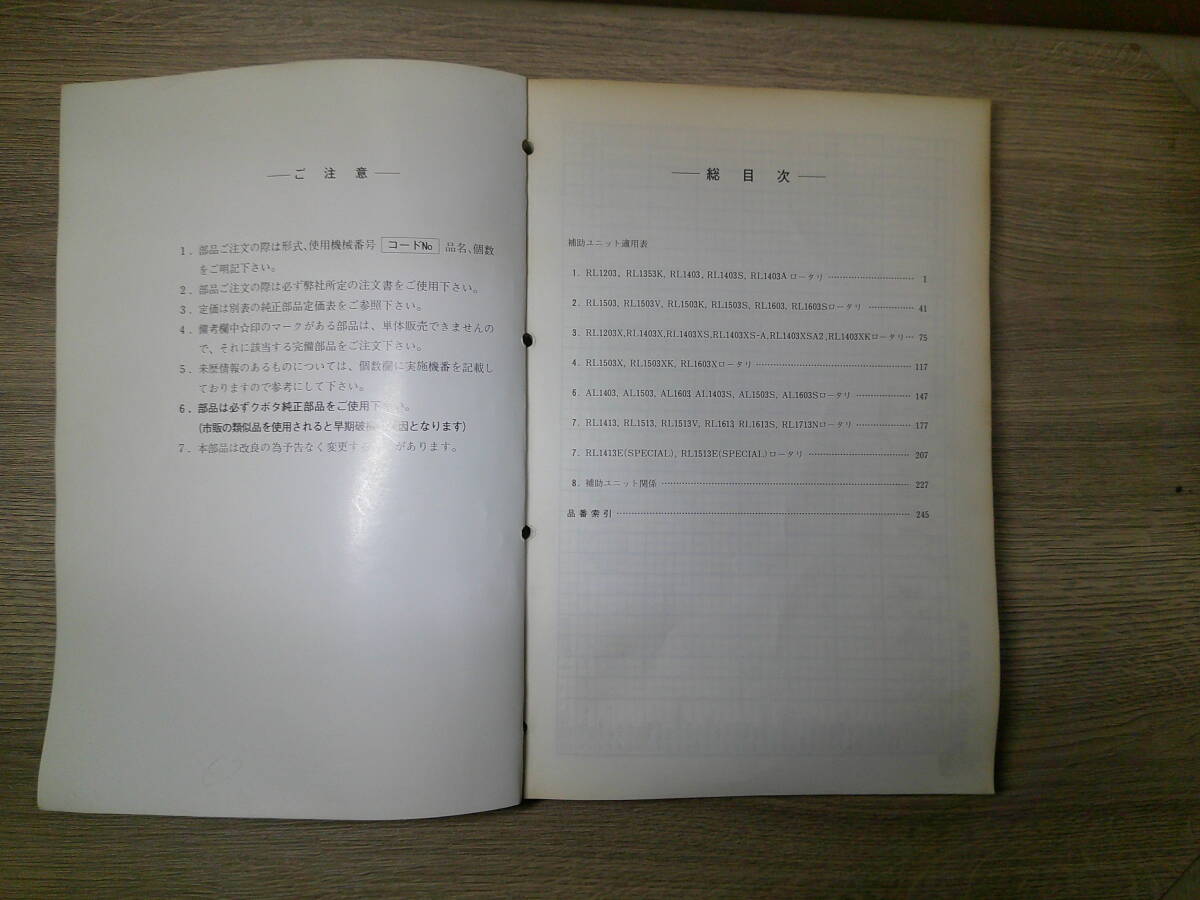 ご注意
1. 部品ご注文の際は形式、使用機械番号 コードNo 品名、個数
をご明記下さい。
2. 部品ご注文の際は必ず弊社所定の注文書をご使用下さい。
3. 定価は別表の純正部品定価表をご参照下さい。
4. 備考欄中☆印のマークがある部品は、単体販売できませんの
で、それに該当する完備部品をご注文下さい。
5. 来歴情報のあるものについては、個数欄に実施機番を記載し
ておりますので参考にして下さい。
6. 部品は必ずクボタ純正部品をご使用下さい。
(市販の類似品を使用されると早期破損 因となります)
7. 本部品は改良の為予告なく変更する があります。
総目次
補助ユニット適用表
1. RL1203, RL1353K, RL1403, RL1403S, RL1403A ロータリ 1
2. RL1503, RL1503V, RL1503K, RL1503S, RL1603, RL1603Sロータリ 41
3. RL1203X,RL1403X,RL1403XS,RL1403XS-A,RL1403XSA2,RL1403XKロータリ 75
4. RL1503X, RL1503XK, RL1603Xロータリ 117
6. AL1403, AL1503, AL1603 AL1403S, AL1503S, AL1603Sロータリ 147
7. RL1413, RL1513, RL1513V, RL1613 RL1613S, RL1713Nロータリ 177
7. RL1413E(SPECIAL), RL1513E(SPECIAL)ロータリ 207
8. 補助ユニット関係 227
品番索引 245